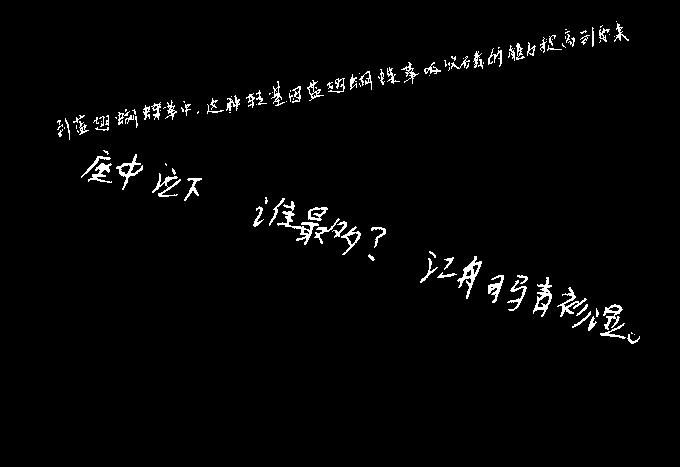 到蓝翅蝴蝶草中,这种转基因蓝翅蝴蝶草吸收砷的能力提高到原来
座中泣下 谁最多? 江舟司马青衫湿。